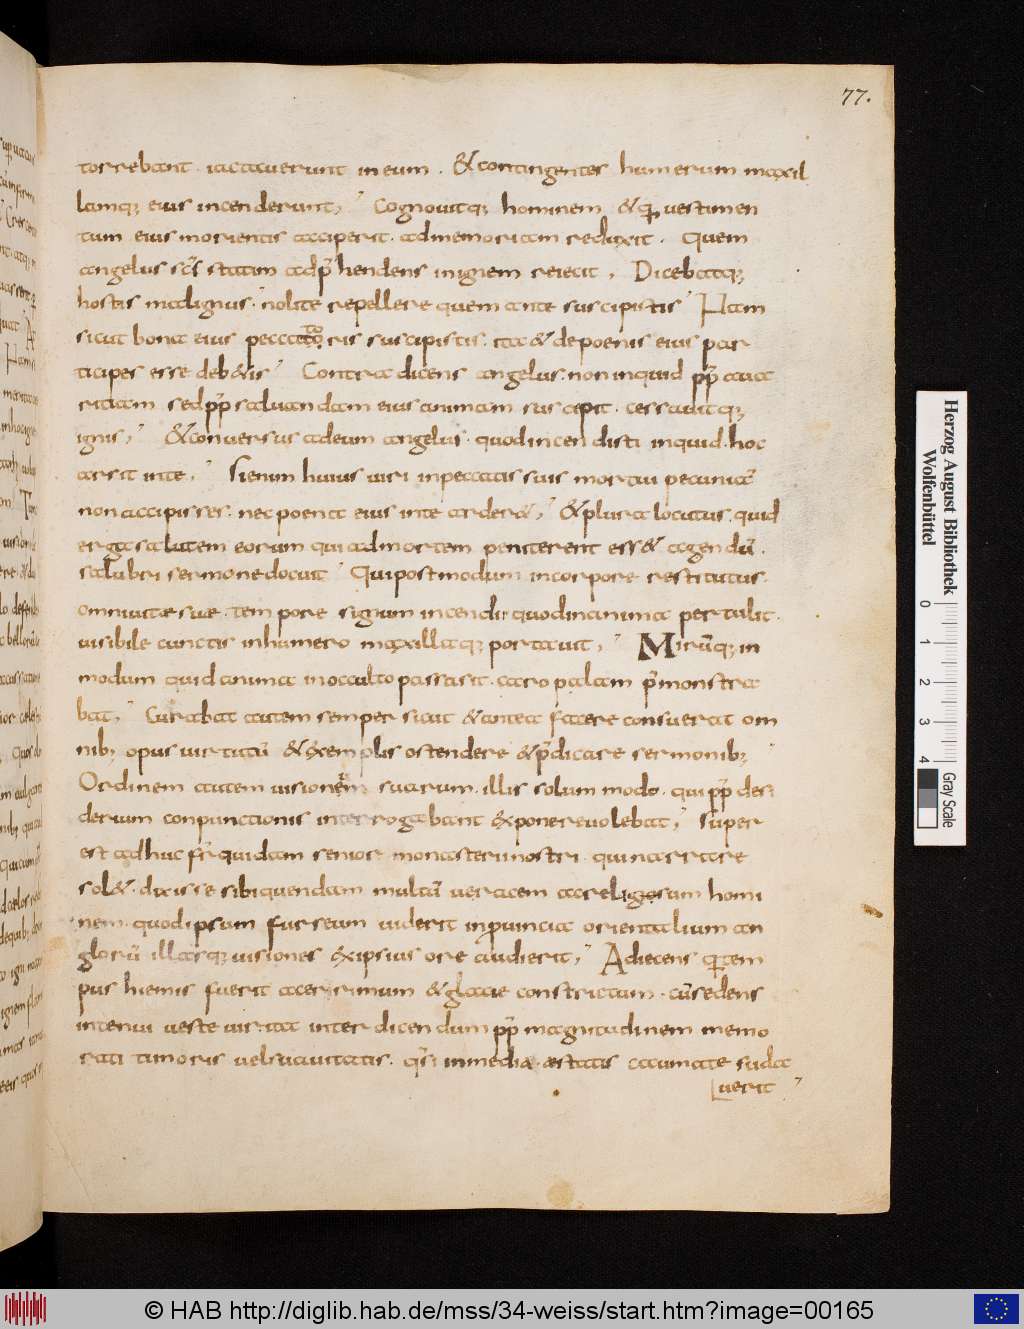 77.
torrebant. iactaverunt in eum. & contingentes humerum maxil
lamq; eius incenderunt; Cognovitq; hominem & q̄ vestimen
tum eius morientis acciperit. ad memoriam reduxit. Quem
angelus scs̄ statim adp̄hendens in ignem reiecit, Dicebatq;
hostis malignus. nolite repellere quem ante suscipistis Nam
sicut bona eius peccatoris suscipistis. ita & de poenis eius par
ticipes esse deb&is Contradicens angelus. non inquid pp̄ ava
ritiam sed pp̄ salvandam eius animam suscepit. cessavitq;
ignis; & conversus ad eum angelus. quod incendisti inquid. hoc
arsit in te; Si enim huius viri in peccatis suis mortui pecuniā
non accipisses. nec poena eius in te arder&; & plura locutus. quid
erga salutem eorum qui ad mortem peniterent ess& agendū.
salubri sermone docuit Qui postmodum in corpore restitutus.
omni vitae suae. tempore signum incendii quod in anima pertulit.
visibile cunctis in humero maxillaq; portavit; Mirūq; in
modum quid anima in occulto passa sit. caro palam p̄monstra
bat; Curabat autem semper sicut & antea facere consuerat om
nib; opus virtutū & exemplis ostendere & p̄dicare sermonib;
Ordinem autem visionem suarum. illis solum modo. qui pp̄ desi
derium conpunctionis interrogabant exponere volebat; Super
est adhuc fr̄ quidam senior monasterii nostri. qui narrare
sol&. dixisse sibi quendam multū veracem ac religiosum homi
nem. quod ipsum furseum viderit in provincia orientalium an
glorū illasq; visiones ex ipsius ore audierit; Adiecens q̄ tem
pus hiemis fuerit acerrimum & glacie constrictum. cūsedens
in tenui veste vir ita inter dicendum pp̄ magnitudinem memo
rati timoris vel suavitatis. q̄si in media. aestatis caumate suda
verit
Herzog August Bibliothek
Wolfenbüttel
0 1 2 3 4
Gray Scale
© HAB http://diglib.hab.de/mss/34-weiss/start.htm?image=00165